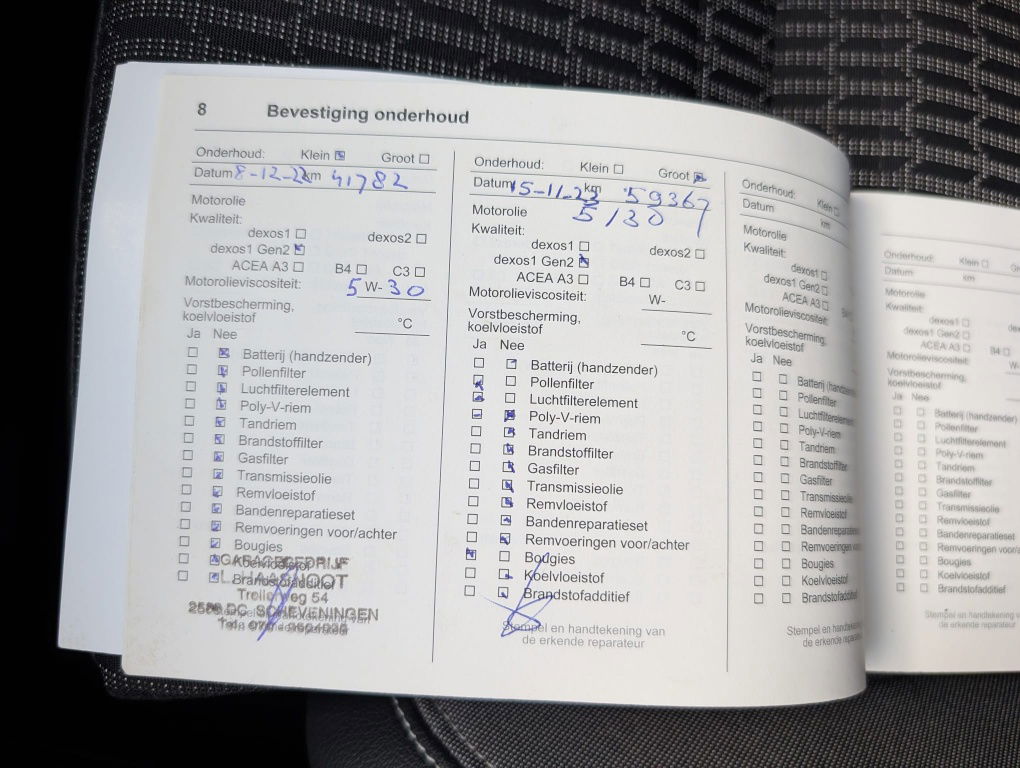 8 Bevestiging onderhoud
Onderhoud: Klein Groot
Datum 8-12-22 km 41782
Motorolie
Kwaliteit:
dexos1 dexos2
dexos1 Gen2
ACEA A3 B4 C3
Motorolieviscositeit: 5 W- 30
Vorstbescherming,
koelvloeistof °C
Ja Nee
Batterij (handzender)
Pollenfilter
Luchtfilterelement
Poly-V-riem
Tandriem
Brandstoffilter
Gasfilter
Transmissieolie
Remvloeistof
Bandenreparatieset
Remvoeringen voor/achter
Bougies
Koelvloeistof
Brandstofadditief
GARAGEBEDRIJF
54
DC SCHEVENINGEN
Onderhoud: Klein Groot
Datum 15-11-23 km 59367
Motorolie 5/30
Kwaliteit:
dexos1 dexos2
dexos1 Gen2
ACEA A3 B4 C3
Motorolieviscositeit: W-
Vorstbescherming,
koelvloeistof °C
Ja Nee
Batterij (handzender)
Pollenfilter
Luchtfilterelement
Poly-V-riem
Tandriem
Brandstoffilter
Gasfilter
Transmissieolie
Remvloeistof
Bandenreparatieset
Remvoeringen voor/achter
Bougies
Koelvloeistof
Brandstofadditief
Stempel en handtekening van
de erkende reparateur
Onderhoud: Klein
Datum km
Motorolie
Kwaliteit:
dexos1
dexos1 Gen2
ACEA A3
Motorolieviscositeit:
Vorstbescherming,
koelvloeistof
Ja Nee
Batterij (handze
Pollenfilter
Luchtfilterelement
Poly-V-riem
Tandriem
Brandstoffilter
Gasfilter
Transmissieolie
Remvloeistof
Bandenreparatie
Remvoeringen voo
Bougies
Koelvloeistof
Brandstofadditief
Stempel en handteken
de erkende reparate
Onderhoud: Klein
Datum km
Motorolie
Kwaliteit:
dexos1
dexos1 Gen2
ACEA A3 B4
Motorolieviscositeit: W-
Vorstbescherming,
koelvloeistof
Ja Nee
Batterij (handzender)
Pollenfilter
Luchtfilterelement
Poly-V-riem
Tandriem
Brandstoffilter
Gasfilter
Transmissieolie
Remvloeistof
Bandenreparatieset
Remvoeringen voor/a
Bougies
Koelvloeistof
Brandstofadditief
Stempel en handtekening van
de erkende reparateur